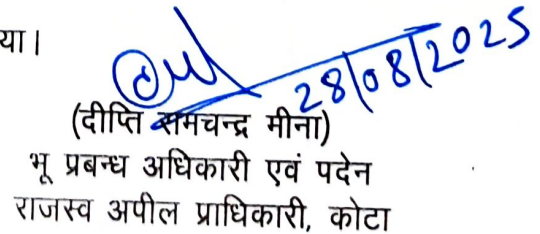 या।
28/08/2025
(दीप्ति रामचन्द्र मीना)
भू प्रबन्ध अधिकारी एवं पदेन
राजस्व अपील प्राधिकारी, कोटा